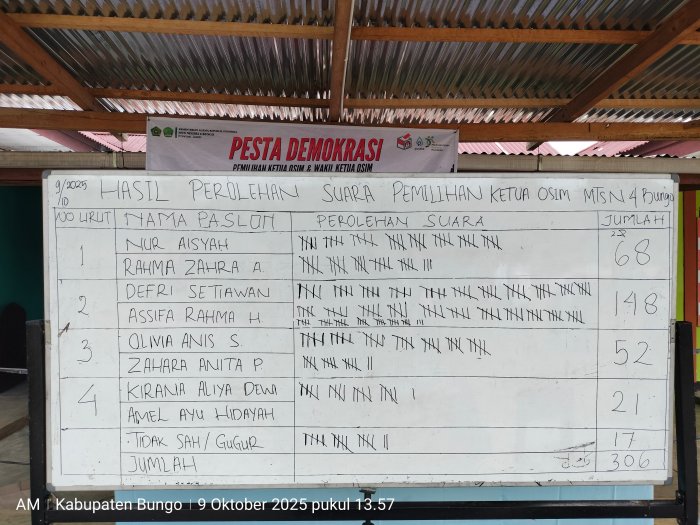 PESTA DEMOKRASI
PEMILIHAN KETUA OSIM & WAKIL KETUA OSIM
9/2025
/10
HASIL PEROLEHAN SUARA PEMILIHAN KETUA OSIM MTSN 4 Bungo
NO URUT NAMA PASLON PEROLEHAN SUARA JUMLAH
1 NUR AISYAH 68
RAHMA ZAHRA A.
2 DEFRI SETIAWAN 148
ASSIFA RAHMA H.
3 OLIVIA ANIS S. 52
ZAHARA ANITA P.
4 KIRANIA ALIYA DEWI 21
AMEL AYU HIDAYAH
TIDAK SAH/GUGUR 17
JUMLAH 306
AM | Kabupaten Bungo | 9 Oktober 2025 pukul 13.57